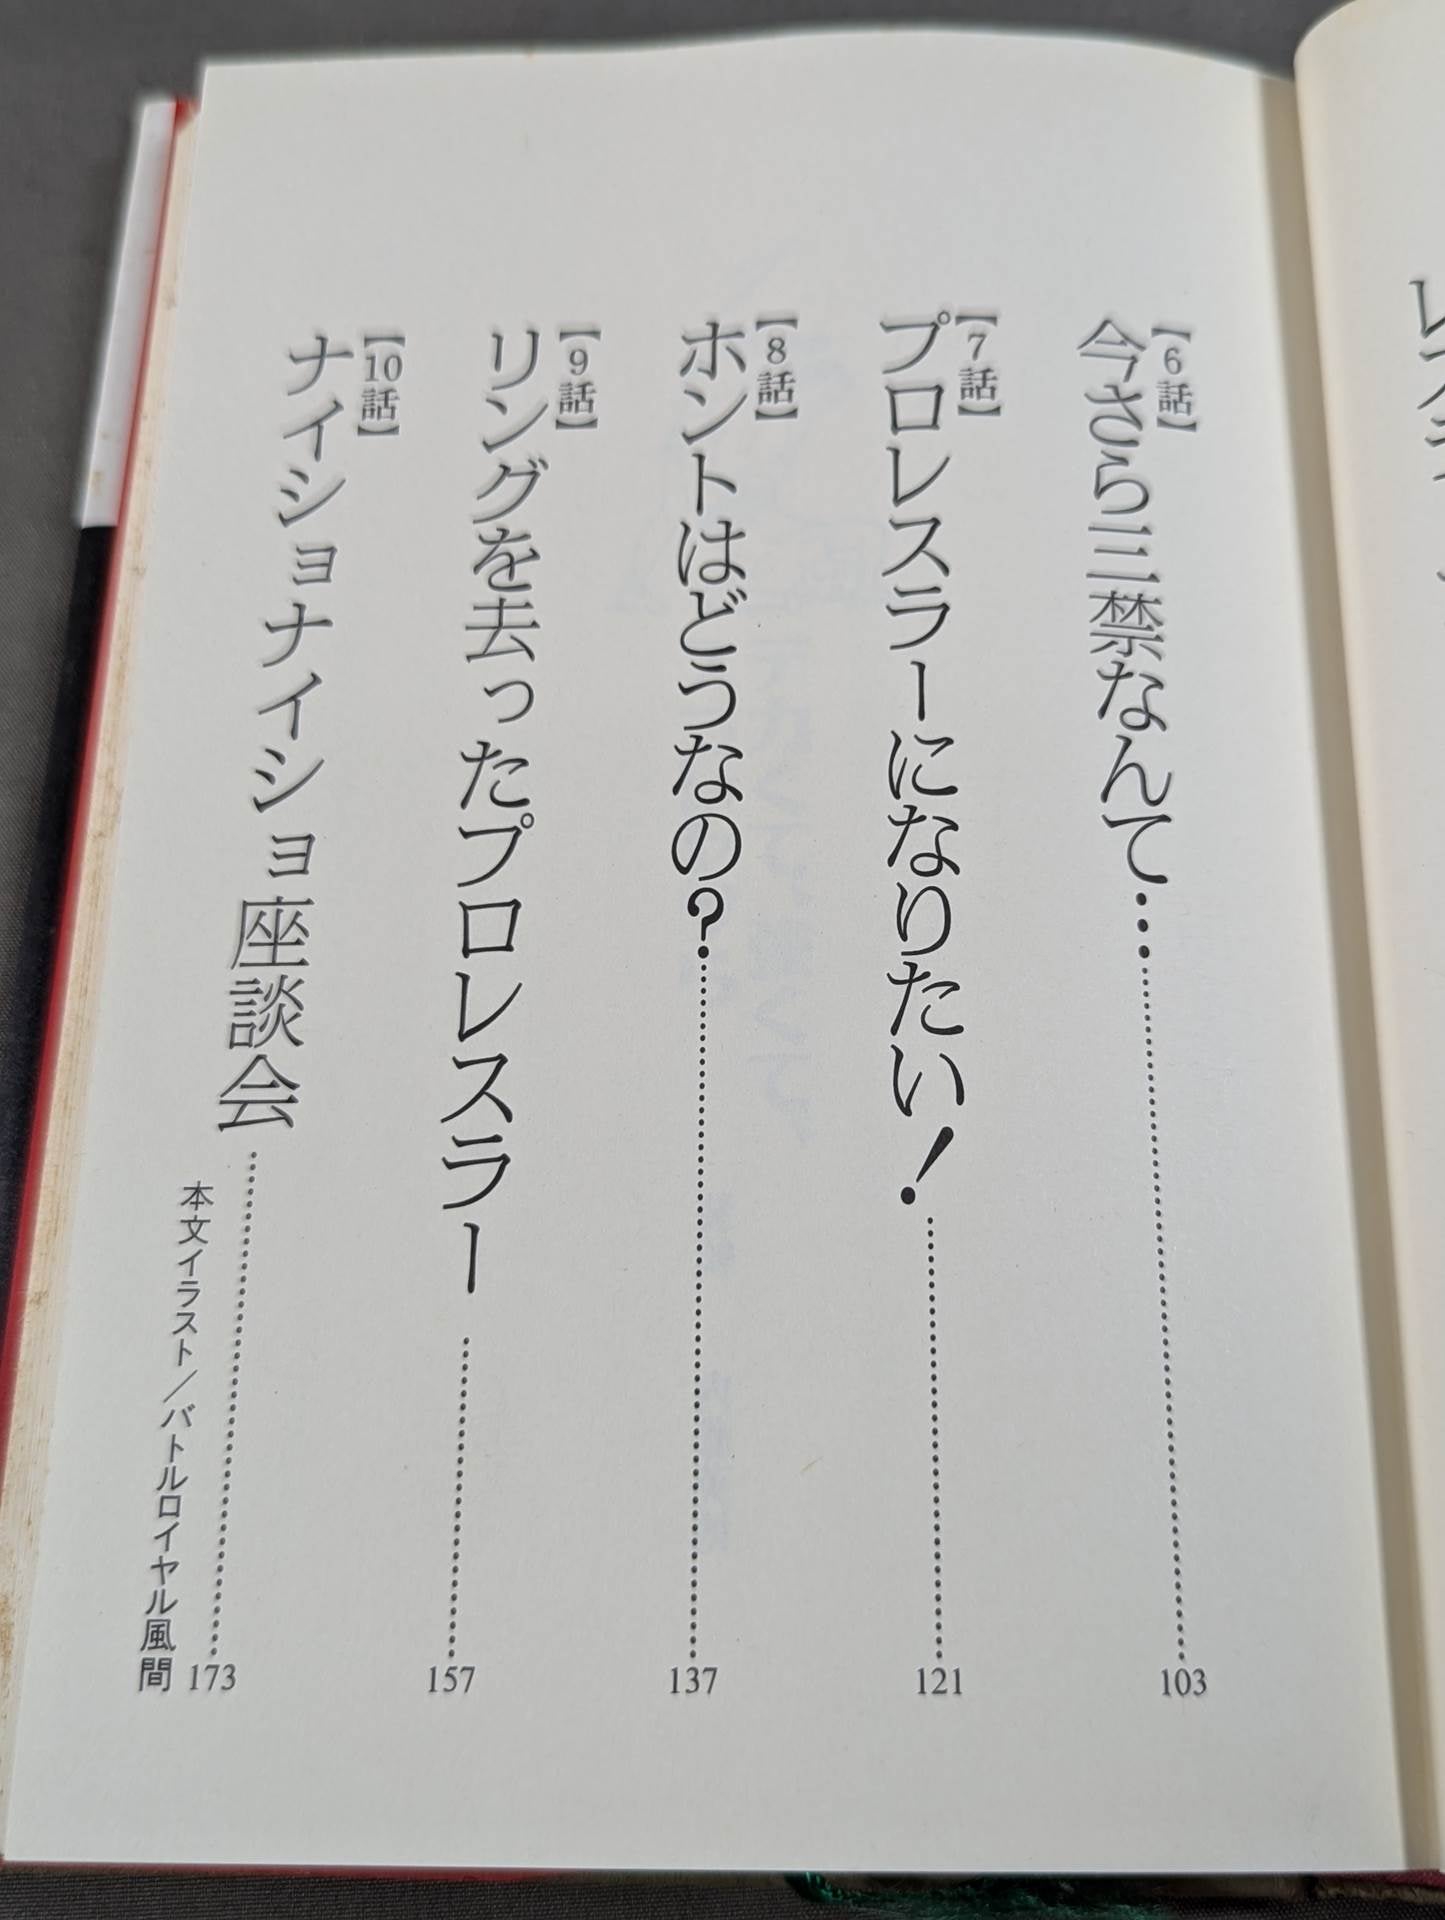 【6話】
今さら三禁なんて………103
【7話】
プロレスラーになりたい！………121
【8話】
ホントはどうなの？………137
【9話】
リングを去ったプロレスラー………157
【10話】
ナイショナイショ座談会………173
本文イラスト／バトルロイヤル風間